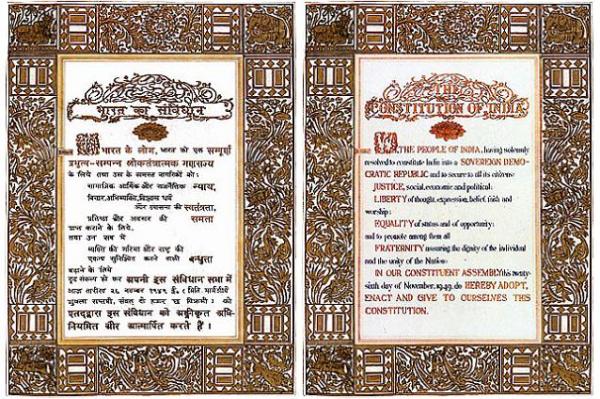 भारत का संविधान
भारत के लोग, भारत को एक सम्पूर्ण
प्रभुत्व-सम्पन्न लोकतंत्रात्मक गणराज्य
के लिये तथा उस के समस्त नागरिकों को:
सामाजिक आर्थिक और राजनैतिक न्याय,
विचार,अभिव्यक्ति,विश्वास धर्म
और उपासना की स्वतंत्रता,
प्रतिष्ठा और अवसर की समता
प्राप्त कराने के लिये,
तथा उन सब में
व्यक्ति की गरिमा और राष्ट्र की
एकता सुनिश्चित करने वाली बन्धुता
बढ़ाने के लिये
दृढ़ संकल्प हो कर अपनी इस संविधान सभा में
आज तारीख २६ नवम्बर १९४९ ई. (मिति मार्गशीर्ष
शुक्ला सप्तमी, संवत् दो हजार छ विक्रमी) को
एतद्द्वारा इस संविधान को अङ्गीकृत अधि-
नियमित और आत्मार्पित करते हैं।
THE
CONSTITUTION OF INDIA
WE, THE PEOPLE OF INDIA, having solemnly
resolved to constitute India into a SOVEREIGN DEMO-
CRATIC REPUBLIC and to secure to all its citizens:
JUSTICE, social, economic and political;
LIBERTY of thought, expression, belief, faith and
worship;
EQUALITY of status and of opportunity;
and to promote among them all
FRATERNITY assuring the dignity of the individual
and the unity of the Nation;
IN OUR CONSTITUENT ASSEMBLY this twenty-
sixth day of November, 1949, do HEREBY ADOPT,
ENACT AND GIVE TO OURSELVES THIS
CONSTITUTION.